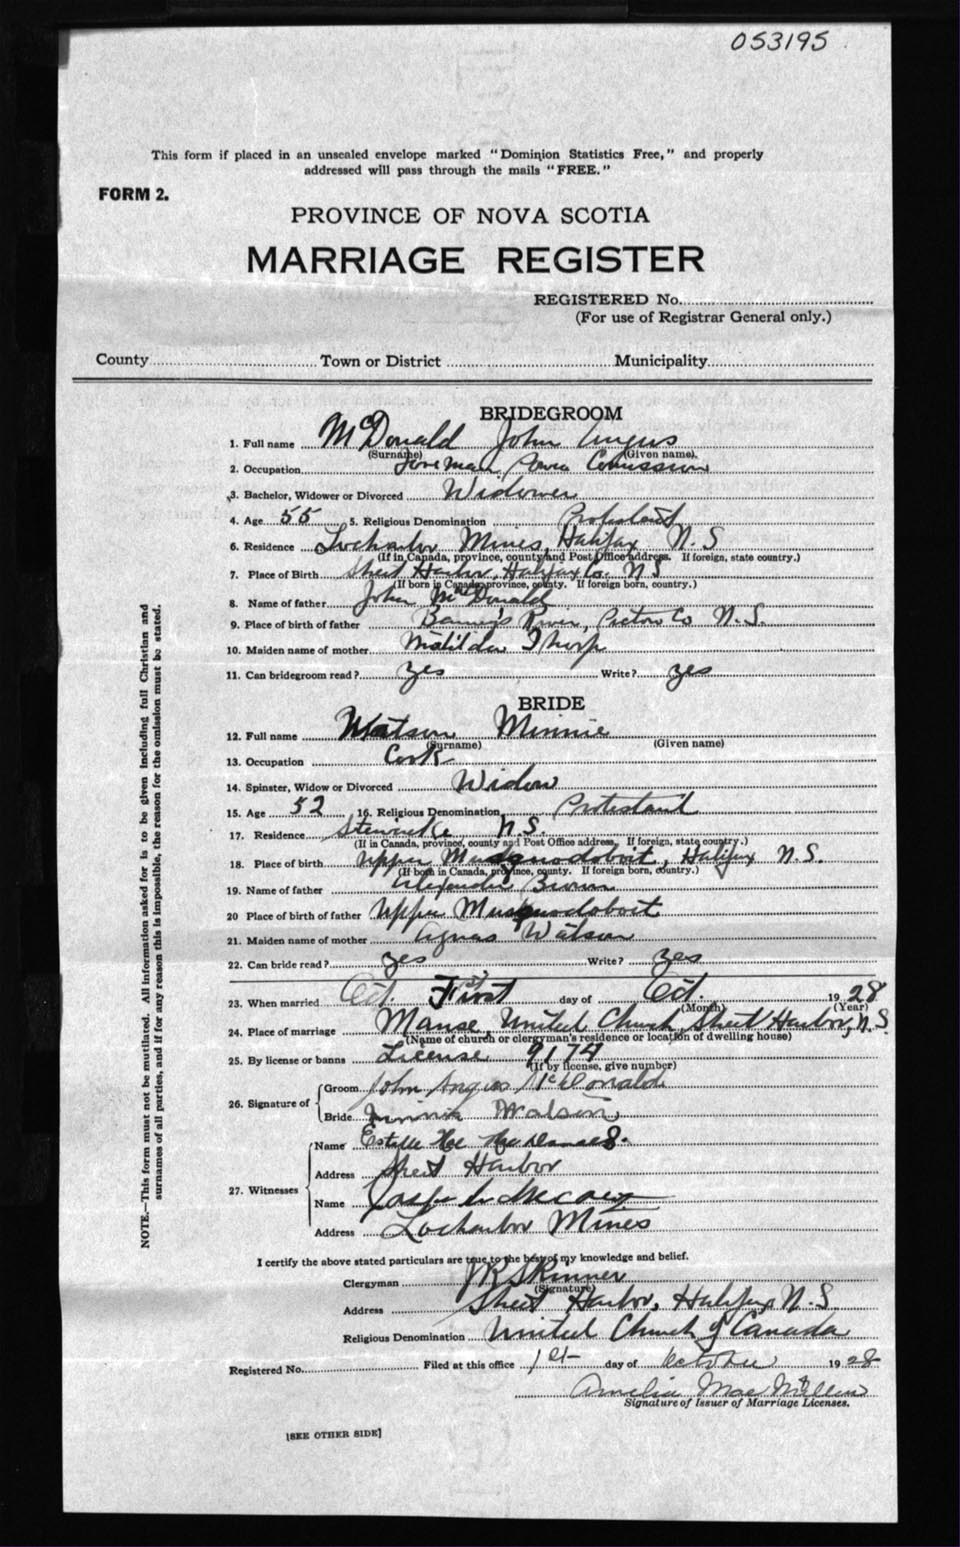 053195
This form if placed in an unsealed envelope marked "Dominion Statistics Free," and properly
addressed will pass through the mails "FREE."
FORM 2.
PROVINCE OF NOVA SCOTIA
MARRIAGE REGISTER
REGISTERED No.
(For use of Registrar General only.)
County Town or District Municipality
BRIDEGROOM
1. Full name McDonald John Angus
(Surname) (Given name)
2. Occupation Foreman Comission
3. Bachelor, Widower or Divorced Widower
4. Age 55 5. Religious Denomination Protestant
6. Residence Lochaber Mines, Halifax N.S
(If in Canada, province, county and Post Office address. If foreign, state country.)
7. Place of Birth Sheet Harbor, Halifax Co. N S
(If born in Canada, province, county. If foreign born, country.)
8. Name of father John McDonald
9. Place of birth of father Barney's River, Pictou Co N.S.
10. Maiden name of mother Matilda Thorp
11. Can bridegroom read? yes Write? yes
BRIDE
12. Full name Watson Minnie
(Surname) (Given name)
13. Occupation Cook
14. Spinster, Widow or Divorced Widow
15. Age 52 16. Religious Denomination Protestant
17. Residence Stewiacke N.S.
(If in Canada, province, county and Post Office address. If foreign, state country.)
18. Place of birth Upper Musquodoboit, Halifax N.S.
(If born in Canada, province, county. If foreign born, country.)
19. Name of father Alexander
20 Place of birth of father Upper Musquodoboit
21. Maiden name of mother Agnes Watson
22. Can bride read? yes Write? yes
23. When married Oct. First day of Oct. 1928
(Month) (Year)
24. Place of marriage Manse, United Church, Sheet Harbor, N.S
(Name of church or clergyman's residence or location of dwelling house)
25. By license or banns License 9174
(If by license, give number)
26. Signature of
Groom John Angus McDonald
Bride Minnie Watson
27. Witnesses
Name Estelle
Address Sheet Harbor
Name
Address Lochaber Mines
I certify the above stated particulars are true to the best of my knowledge and belief.
Clergyman Skinner
(Signature)
Address Sheet Harbor, Halifax N.S.
Religious Denomination United Church of Canada
Registered No. Filed at this office 1st day of October 1928
Amelia MacMillan
Signature of Issuer of Marriage Licenses.
[SEE OTHER SIDE]
NOTE.—This form must not be mutilated. All information asked for is to be given including full Christian and
surnames of all parties, and if for any reason this is impossible, the reason for the omission must be stated.